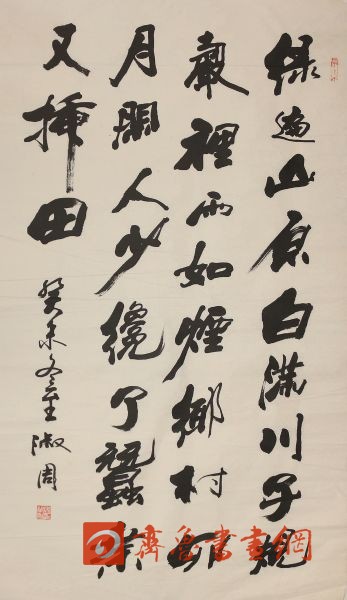 綠遍山原白滿川子規
聲裡雨如煙鄉村四
月閒人少纔了蠶桑
又插田
癸未冬至淑周
齊魯書畫網